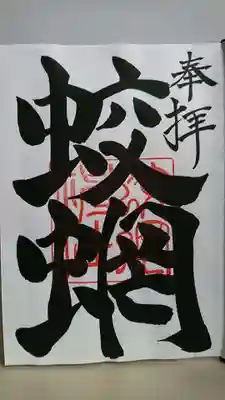 奉拝
蛟蝄